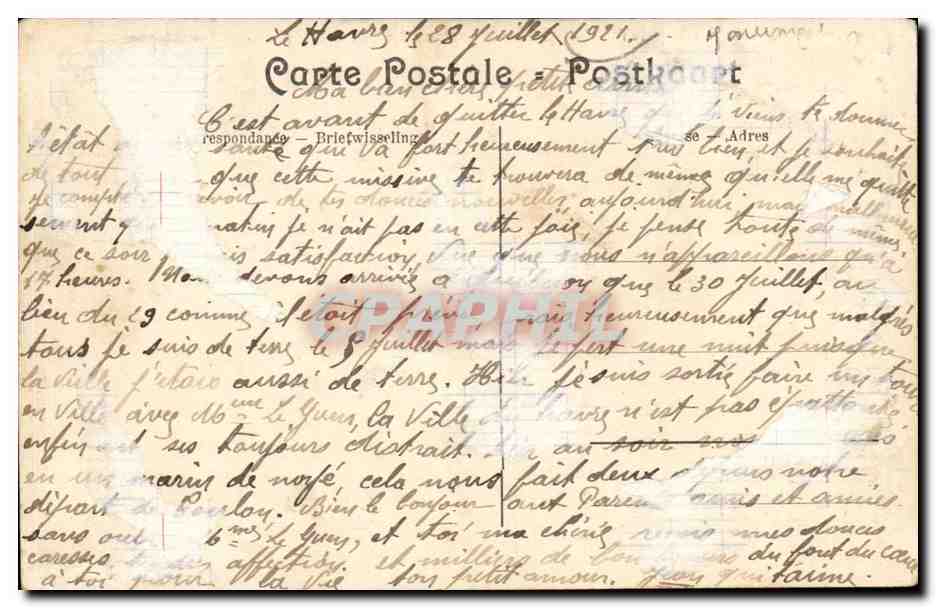 Le Havre le 28 Juillet 1921.
Carte Postale - Postkaart
Ma bien chère petite
C'est avant de quitter le Havre que je viens te donner
respondance — Briefwisseling se — Adres
l'état santé que va fort heureusement très bien, et je souhaite
de tout que cette missive te trouvera de même qu'elle me quitte
je compte de tes douces nouvelles aujourd'hui mais malheureu
sement que matin je n'ait pas eu cette joie, je pense toute de même,
que ce soir satisfaction, vue que nous n'appareillons qu'à
17 heures. Nous devons arrivé à que le 30 Juillet, au
lieu du 29 comme il était prévu mais heureusement que malgrés
tous je suis de terre le Juillet mais une nuit puisque
la ville j'étais aussi de terre. Hier je suis sortie faire un tour
en ville avec Mme Le Yuen, la ville du havre n'est pas
enfin ses toujours distrait. Hier au soir
en un marin de noyé, cela nous fait deux depuis notre
départ de Toulon. Bien le bonjour aut Parents amis et amies
sans ou Mme Le Yuen, et toi ma chérie reçois mes douces
caresses, affection et milliers de bons du font du cœur
à toi pour la vie ton petit amour. Jean qui t'aime.
CPAPHIL